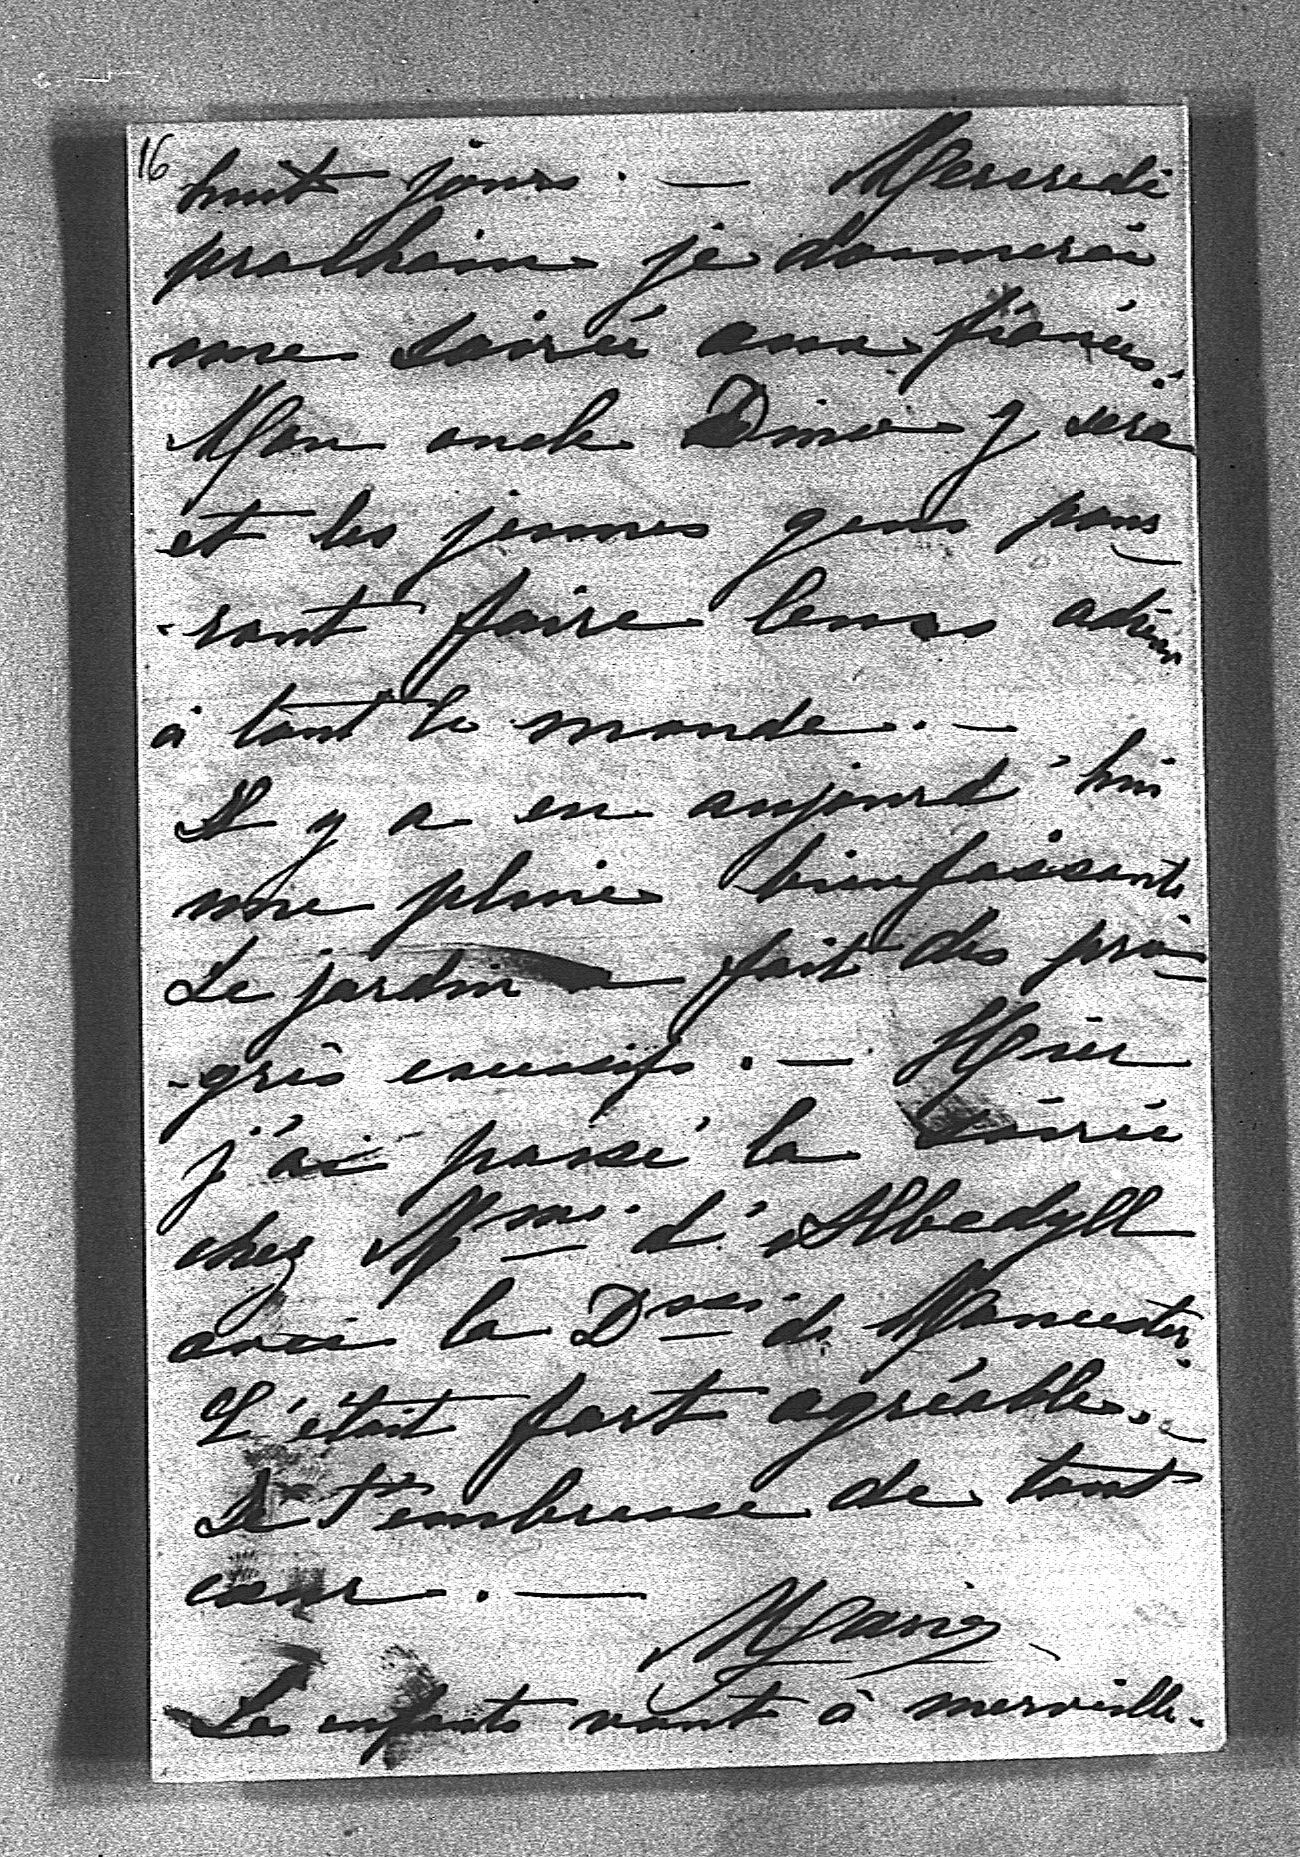 16
huit jours. — Mercredi
prochain je donnerai
une soirée aux fiancés.
Mon oncle Dino y sera
et les jeunes gens pour-
-ront faire leurs adieux
à tout le monde. —
Il y a eu aujourd'hui
une pluie bienfaisante
Le jardin a fait des pro-
-grès excessifs. — Hier
j'ai passé la soirée
chez Mme. d'Albedyll
avec la Dsse. de Mancester.
C'était fort agréable. —
Je t'embrasse de tout
cœur. —
Marie
Les enfants vont à merveille.